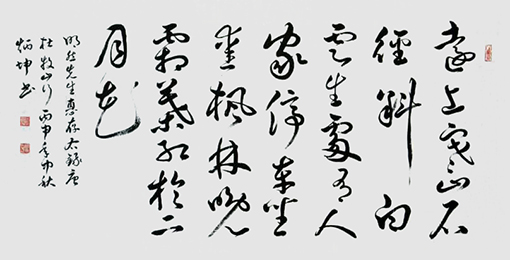 遠上寒山石
徑斜白
云生處有人
家停車坐
愛楓林晚
霜葉紅於二
月花
先生惠存 錄唐
杜牧山行 丙申年仲秋
炳坤書